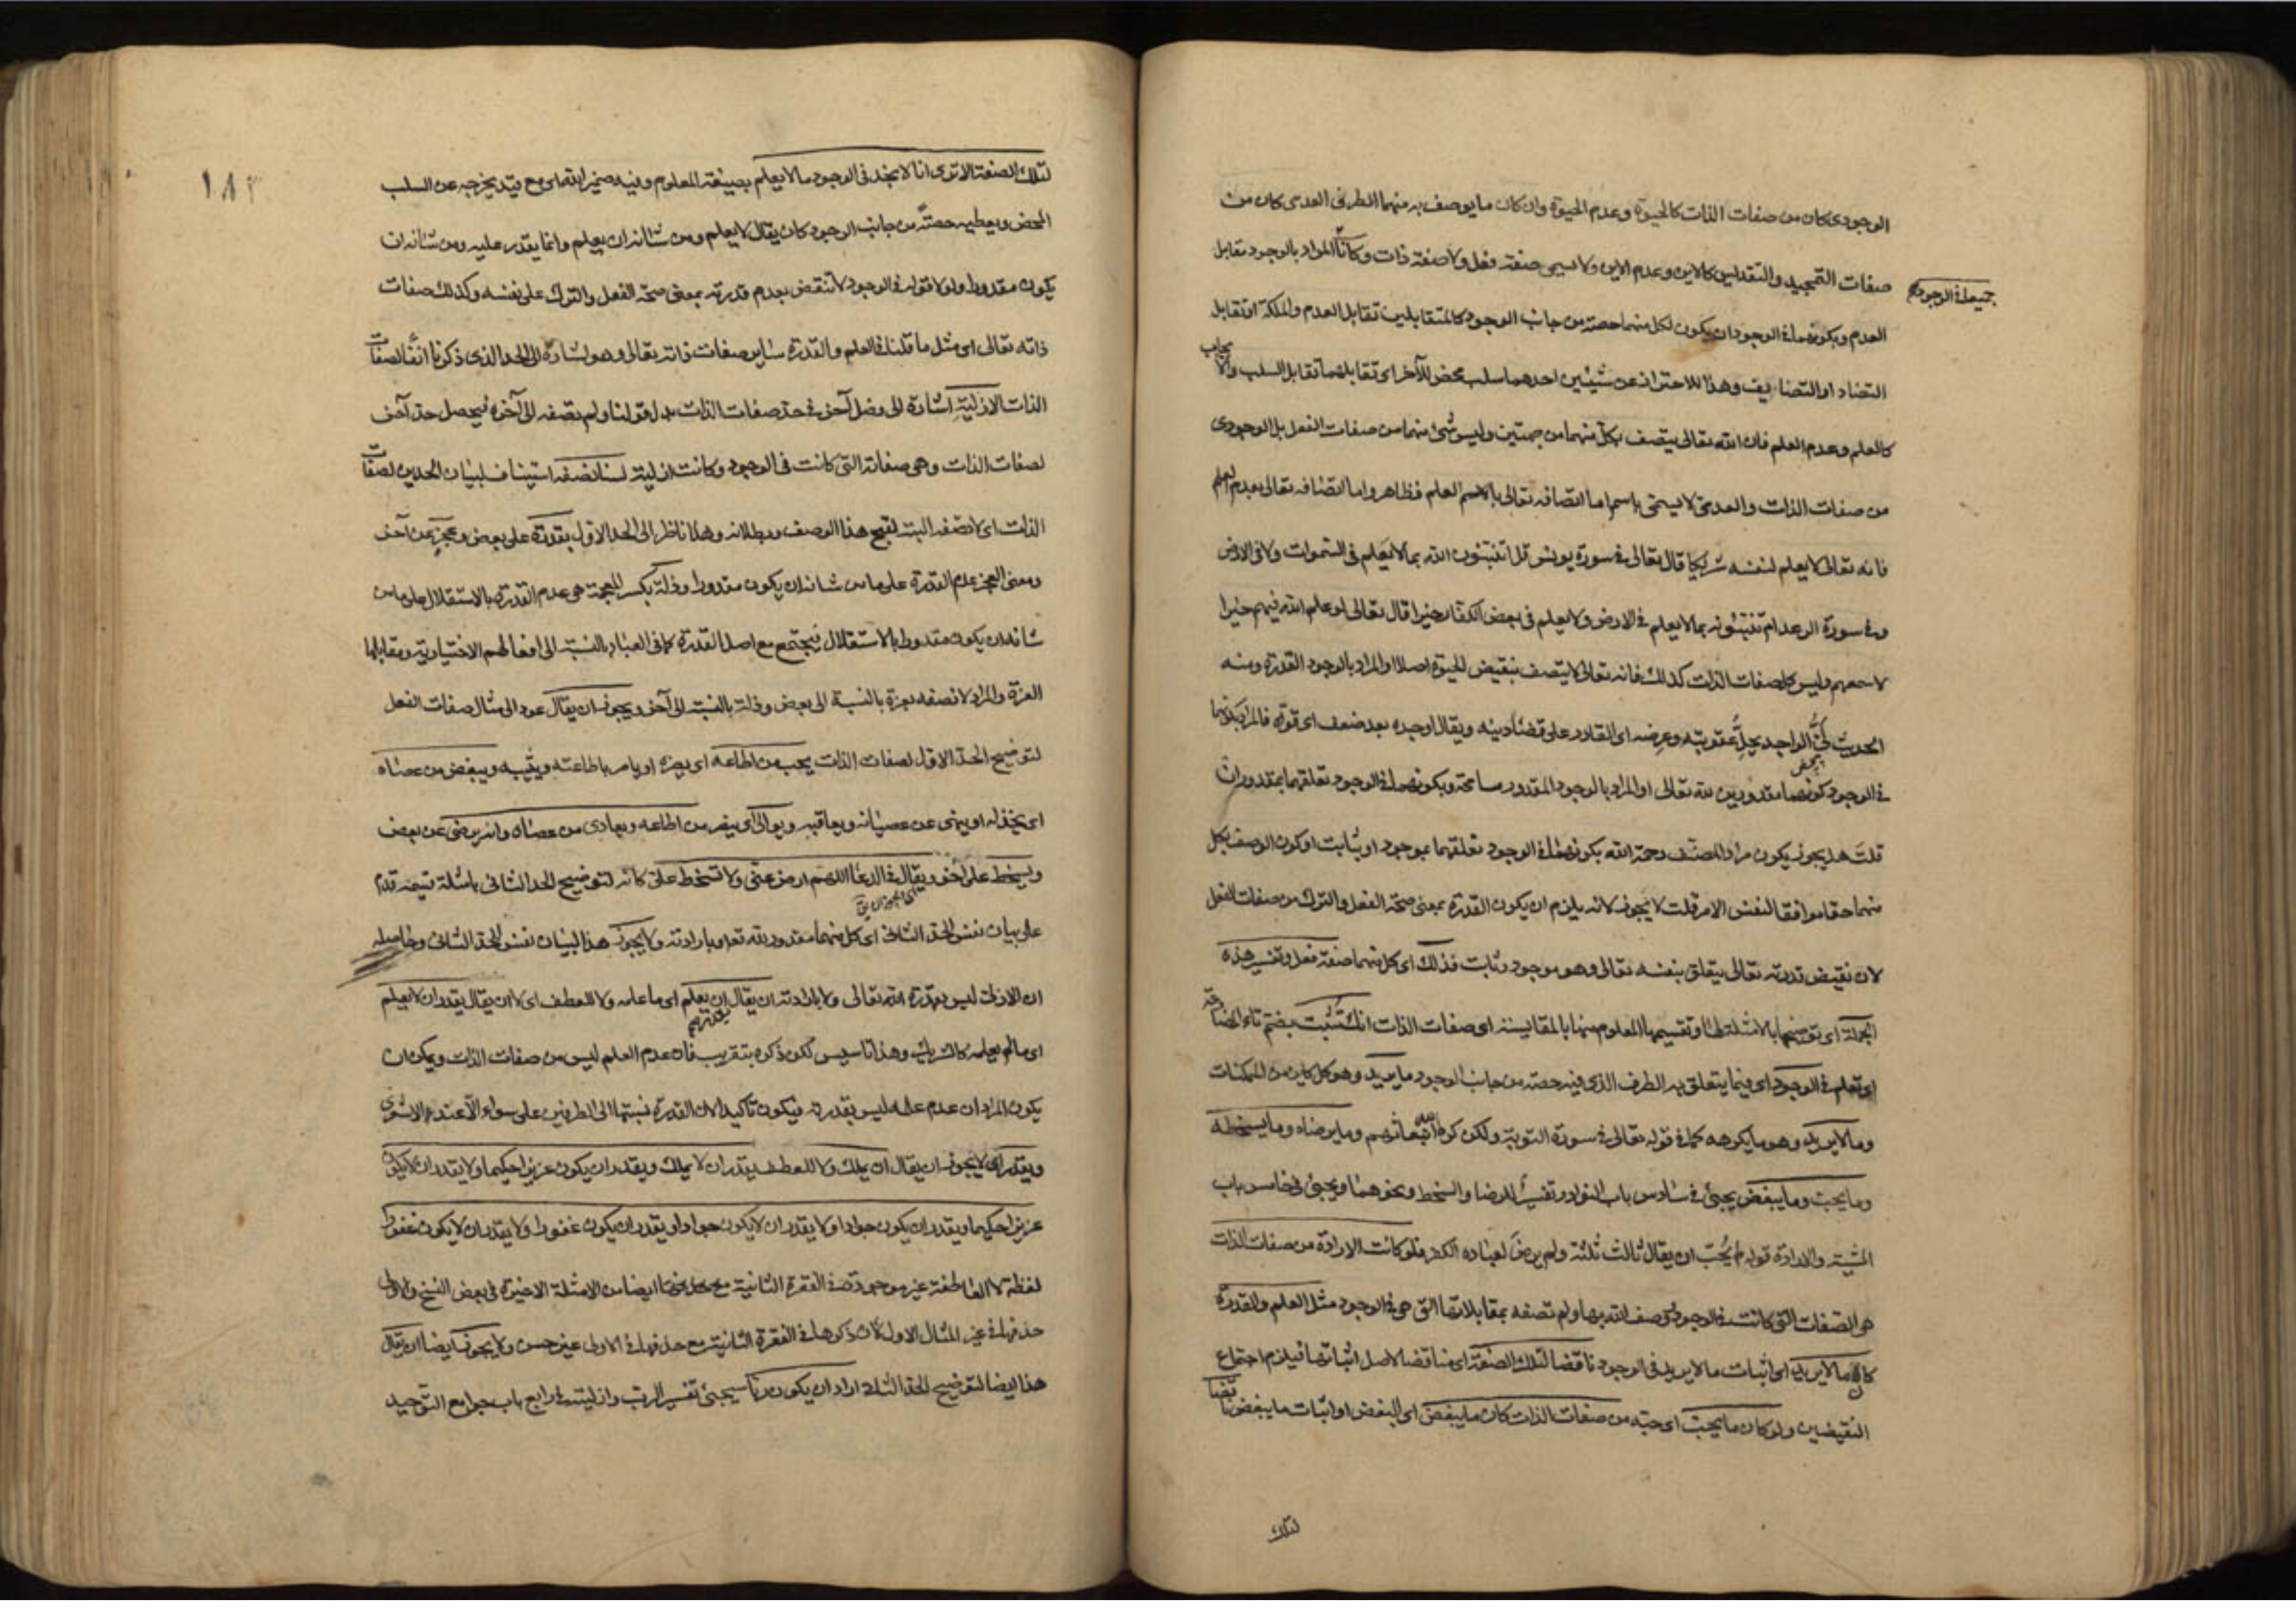 الوجودى كان من صفات الذات كالحيوة وعدم الحيوة وان كان ما يوصف به منهما الطرفى العدمى كان من
صفات التمجيد والتقديس كالاين وعدم الاين ولا يسمى صفة فعل ولا صفة ذات وكانّ المراد بالوجود مقابل
جميعا فى الوجود
العدم وبكونهما فى الوجود ان يكون لكل منهما حصة من جانب الوجود كالمتقابلين تقابل العدم والملكة او تقابل
التضاد او التضايف وهذا للاحتراز عن شيئين احدهما سلب محض للآخر اى تقابلهما تقابل السلب والايجاب
كالعلم وعدم العلم فان الله تعالى يتصف بكل منهما من جهتين وليس شئ منهما من صفات الفعل بل الوجودى
من صفات الذات والعدمى لا يسمى باسم اما اتصافه تعالى بالاسم العلم فظاهر واما اتصافه تعالى بعدم العلم
فانه تعالى لا يعلم لنفسه شريكا قال تعالى فى سورة يونس قل اتنبئون الله بما لا يعلم فى السموات ولا فى الارض
وفى سورة الرعد ام تنبئونه بما لا يعلم فى الارض ولا يعلم فى بعض الكفار خيرا قال تعالى لو علم الله فيهم خيرا
لاسمعهم وليس كل صفات الذات كذلك فانه تعالى لا يتصف بنقيض الحيوة اصلا او المراد بالوجود القدرة ومنه
الحديث لىّ الواجد يحلّ عقوبته وعرضه اى القادر على قضاء دينه ويقال اوجده بعد ضعف اى قوته فالمراد بكونهما
فى الوجود كونهما مقدورين لله تعالى او المراد بالوجود المقدور مسامحة وبكونهما فى الوجود تعلقهما بمقدوران
قلت هل يجوز يكون مراد المصنف رحمة الله بكونهما فى الوجود تعلقهما بموجود او بثابت او كون الوصف بكل
منهما حقا موافقا لنفس الامر قلت لا يجوز لانه يلزم ان يكون القدرة بمعنى صحة الفعل والترك من صفات الفعل
لان نقيض قدرته تعالى يتعلق بنفسه تعالى وهو موجود وثابت فذلك اى كل منهما صفة فعل وتفسير هذه
الجملة اى توضيحها بالامثلة وتقسيمها المعلوم منها بالمقايسة اى صفات الذات انك تثبت بضم تاء المضارعة
اى تعلم فى الوجود اى فيما يتعلق به الطرف الذى فيه حصة من جانب الوجود ما يريد وهو كل كاين من الممكنات
وما لا يريد وهو ما يكرهه كما فى قوله تعالى فى سورة التوبة ولكن كره الله انبعاثهم وما يرضاه وما يسخطه
وما يحب وما يبغض يجيئ فى سادس باب النوادر تفسير للرضا والسخط ونحوهما ويجيئ فى خامس باب
المشية والارادة قوله لم يحب ان يقال ثالث ثلثة ولم يرض لعباده الكفر فلو كانت الارادة من صفات الذات
هى الصفات التى كانت فى الوجود توصف الله بها ولم تصفه بمقابلاتها التى هى فى الوجود مثل العلم والقدرة
كان ما لا يريد اى اثبات ما لا يريد فى الوجود ناقضا لتلك الصفة اى مناقضا لاصل اثباتها فيلزم اجتماع
النقيضين ولو كان ما يحب اى حبه من صفات الذات كان ما يبغض اى البغض او اثبات ما يبغض ناقضا
لتلك
لتلك الصفة الا ترى انا لا نجد فى الوجود ما لا يعلم بصيغة المعلوم وفيه ضمير الله اى مع قيد يخرجه عن السلب
المحض ويعطيه حصة من جانب الوجود كان يقال لا يعلم ومن شانه ان يعلم وانما يقدر عليه ومن شانه ان
يكون مقدورا ولو لا قوله فى الوجود لانتقض بعدم قدرته بمعنى صحة الفعل والترك على نفسه وكذلك صفات
ذاته تعالى اى مثل ما قلنا فى العلم والقدرة ساير صفات ذاته تعالى وهو اشارة الى الحد الذى ذكرنا آنفا لصفات
الذات الازلية اشارة الى فصل آخر فى حد صفات الذات بدل قولنا ولم نصفه الى آخره فيحصل حد آخر
لصفات الذات وهى صفاته التى كانت فى الوجود وكانت ازلية لسنا نصفه استيناف لبيان الحدين لصفات
الذات اى لا نصفه البتة لقبح هذا الوصف وبطلانه وهذا ناظر الى الحد الاول بقدرة على بعض وعجز عن آخر
ومعنى العجز عدم القدرة على ما من شانه ان يكون مقدورا وذلة بكسر المعجمة هى عدم القدرة بالاستقلال على ما من
شانه ان يكون مقدورا بالاستقلال فيجتمع مع اصل القدرة كما فى العباد بالنسبة الى افعالهم الاختيارية ومقابلها
العزة والمراد لا نصفه بعزة بالنسبة الى بعض وذلة بالنسبة الى آخر ويجوز ان يقال عود الى مثال صفات الفعل
لتوضيح الحد الاول لصفات الذات يحب من اطاعه اى يعزه او يامر باطاعته ويثيبه ويبغض من عصاه
اى يخذله او ينهى عن عصيانه ويعاقبه ويوالى اى ينصر من اطاعه ويعادى من عصاه وانه يرضى عن بعض
ويسخط على آخر ويقال فى الدعا اللهم ارض عنى ولا تسخط على كانه لتوضيح الحد الثانى بامثلة قيمته قدم
على بيان نفس الحد الثانى اى كل منهما مقدور لله تعالى وبارادته ولا يجوز هذا لبيان نفس الحد الثانى وحاصله
ان الازلى ليس بقدرة الله تعالى ولا بارادته ان يقال ان يعلم اى ما علمه ولا للعطف اى لا ان يقال يقدر ان لا يعلم
اى ما لم يعلمه كالشريك وهذا تاسيس لكن ذكره بتقريب فان عدم العلم ليس من صفات الذات ويمكن ان
يكون المراد ان عدم علمه ليس بقدرته فيكون تاكيدا لان القدرة نسبتها الى الطرفين على سواء الا عند الاشعرى
ويقدر اى لا يجوز ان يقال ان يملك ولا للعطف يقدر ان لا يملك ويقدر ان يكون عزيزا حكيما ولا يقدر ان لا يكون
عزيزا حكيما ويقدر ان يكون جوادا ولا يقدر ان لا يكون جوادا ويقدر ان يكون غفورا ولا يقدر ان لا يكون غفورا
لفظة لا العاطفة غير موجودة فى الفقرة الثانية مع حذفها ايضا من الامثلة الاخيرة فى بعض النسخ والاولى
حذفها فى غير المثال الاول لان ذكرها فى الفقرة الثانية مع حذفها فى الاولى غير حسن ولا يجوز ايضا ان يقال
هذا ايضا لتوضيح الحد الثانى اراد ان يكون ربا سيجيئ تفسير الرب وازليته فى رابع باب جوامع التوحيد